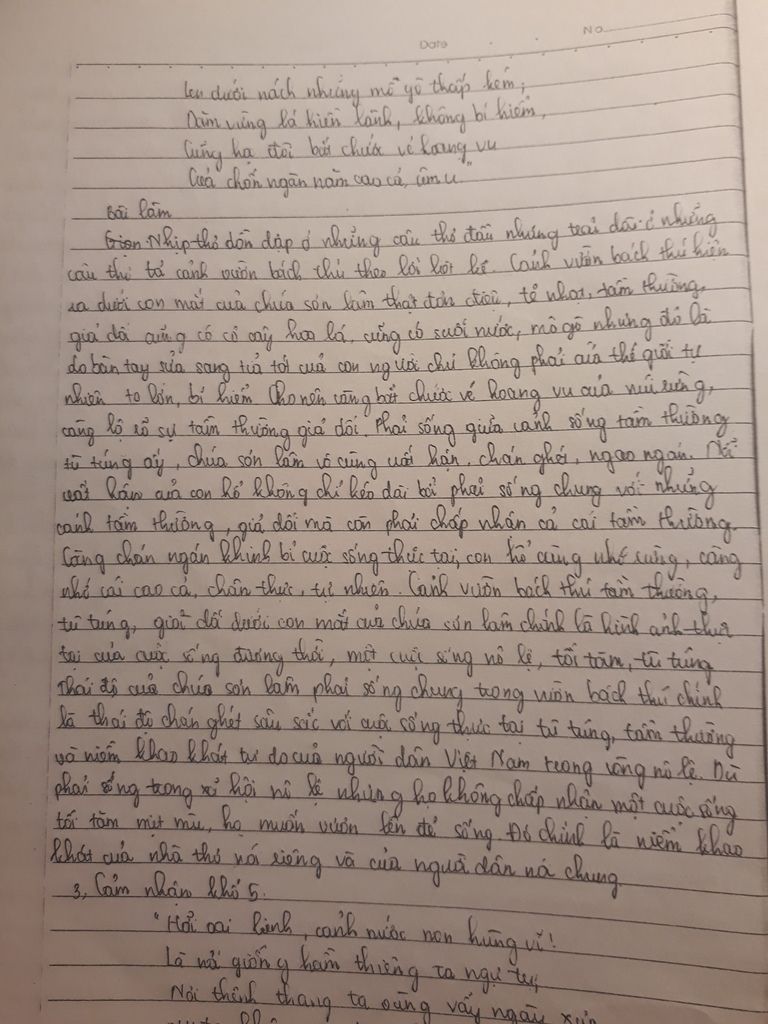 Date No
Len dưới nách những mô gò thấp kém;
Dăm vừng lá hiền lành, không bí hiểm,
Cũng học đòi bắt chước vẻ hoang vu
Của chốn ngàn năm cao cả, âm u"
Bài làm
Giọng Nhịp thơ dồn dập ở những câu thơ đầu nhưng trải dài ở những
câu thơ tả cảnh vườn bách thú theo lối liệt kê. Cảnh vườn bách thú hiện
ra dưới con mắt của chúa sơn lâm thật đơn điệu, tẻ nhạt, tầm thường,
giả dối cũng có cỏ cây hoa lá, cũng có suối nước, mô gò nhưng đó là
do bàn tay sửa sang tỉa tót của con người chứ không phải của thế giới tự
nhiên to lớn, bí hiểm. Cho nên càng bắt chước vẻ hoang vu của núi rừng,
càng lộ rõ sự tầm thường giả dối. Phải sống giữa cảnh sống tầm thường
tù túng ấy, chúa sơn lâm vô cùng uất hận, chán ghét, ngao ngán. Nỗi
uất hận của con hổ không chỉ kéo dài bởi phải sống chung với những
cảnh tầm thường, giả dối mà còn phải chấp nhận cả cái tầm thường.
Càng chán ngán khinh bỉ cuộc sống thực tại, con hổ càng nhớ rừng, càng
nhớ cái cao cả, chân thực, tự nhiên. Cảnh vườn bách thú tầm thường,
tù túng, giả dối dưới con mắt của chúa sơn lâm chính là hình ảnh thực
tại của cuộc sống đương thời, một cuộc sống nô lệ, tối tăm, tù túng
Thái độ của chúa sơn lâm phải sống chung trong vườn bách thú chính
là thái độ chán ghét sâu sắc với cuộc sống thực tại tù túng, tầm thường
và niềm khao khát tự do của người dân Việt Nam trong vòng nô lệ. Dù
phải sống trong xã hội nô lệ nhưng họ không chấp nhận một cuộc sống
tối tăm mịt mù, họ muốn vươn lên để sống. Đó chính là niềm khao
khát của nhà thơ nói riêng và của người dân nói chung
3, Cảm nhận khổ 5.
"Hỡi oai linh, cảnh nước non hùng vĩ!
Là nơi giống hầm thiêng ta ngự trị,
Nơi thênh thang ta vùng vẫy ngày xưa